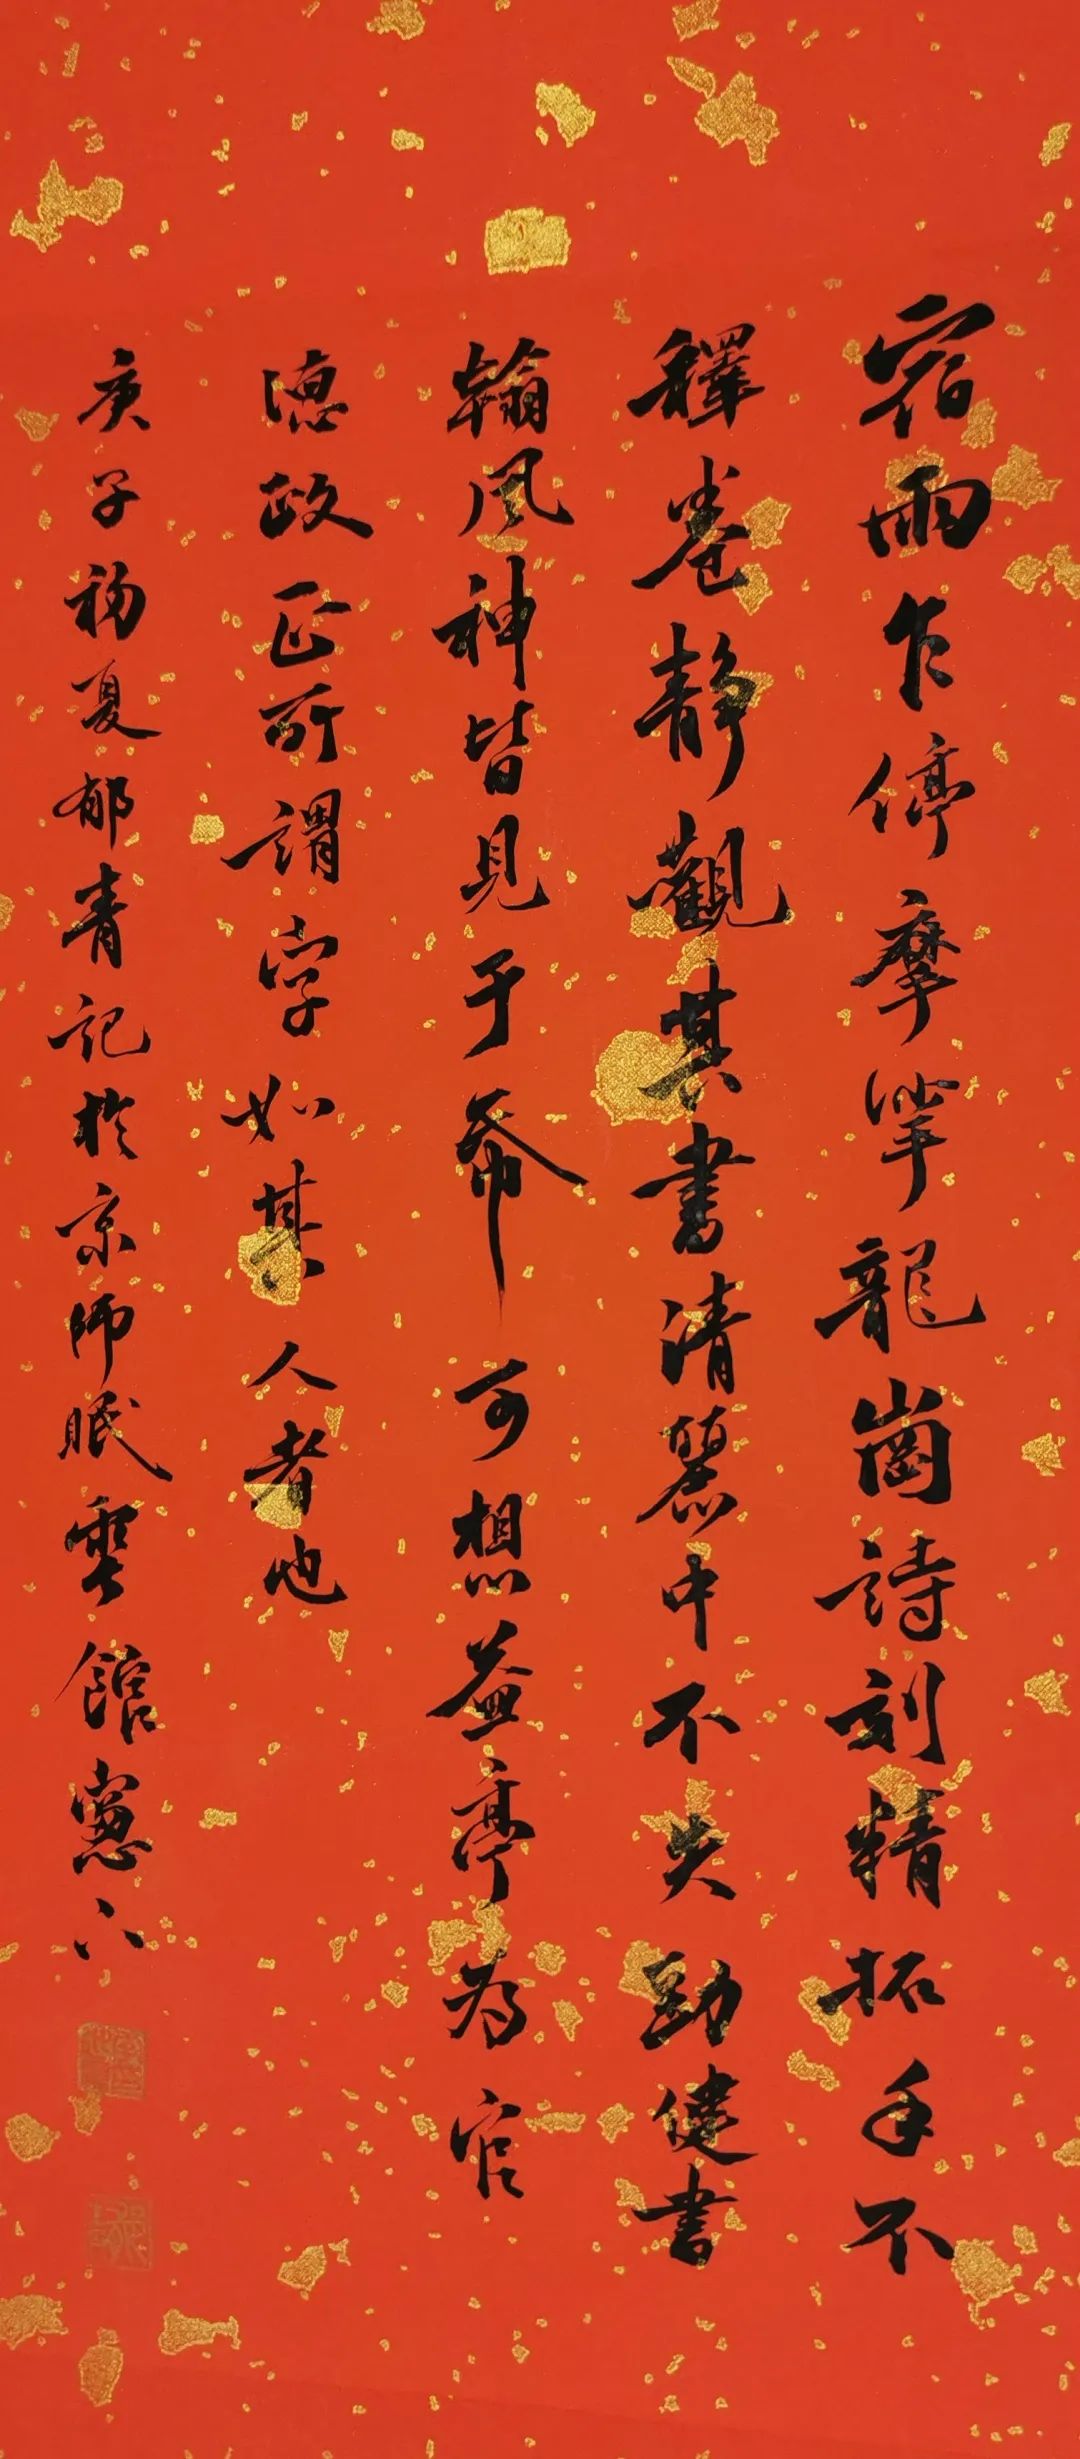 宿雨乍停摩挲龍崗詩刻精拓手不
釋卷靜觀其書清麗中不失勁健書
翰風神皆見于帋可想益亭為官
德政正所謂字如其人者也
庚子初夏郁青記於京師眠雲館窗下